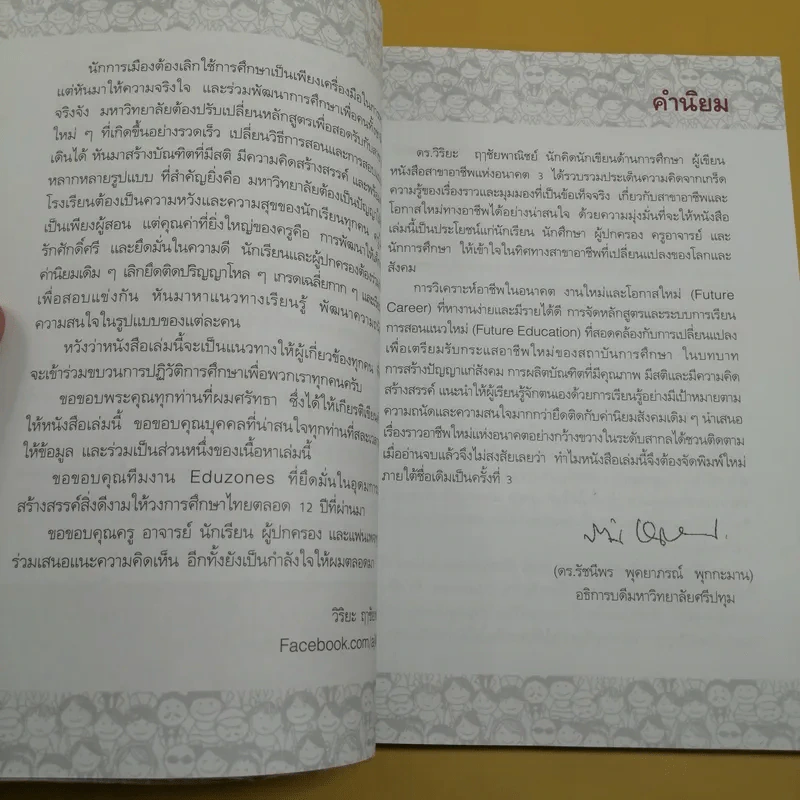 นักการเมืองต้องเลิกใช้การศึกษาเป็นเพียงเครื่องมือใน
แต่หันมาให้ความจริงใจ และร่วมพัฒนาการศึกษาเพื่อคน
จริงจัง มหาวิทยาลัยต้องปรับเปลี่ยนหลักสูตรเพื่อสอดรับกับ
ใหม่ ๆ ที่เกิดขึ้นอย่างรวดเร็ว เปลี่ยนวิธีการสอนและการสอบ
เดินได้ หันมาสร้างบัณฑิตที่มีสติ มีความคิดสร้างสรรค์
หลากหลายรูปแบบ ที่สำคัญยิ่งคือ มหาวิทยาลัยต้องเป็นปัญญา
โรงเรียนต้องเป็นความหวังและความสุขของนักเรียนทุกคน
เป็นเพียงผู้สอน แต่คุณค่าที่ยิ่งใหญ่ของครูคือ การพัฒนาให้
รักศักดิ์ศรี และยึดมั่นในความดี นักเรียนและผู้ปกครองต้อง
ค่านิยมเดิม ๆ เลิกยึดติดปริญญาโหล ๆ เกรดเฉลี่ยกาก ๆ และ
เพื่อสอบแข่งกัน หันมาหาแนวทางเรียนรู้ พัฒนาความ
ความสนใจในรูปแบบของแต่ละคน
หวังว่าหนังสือเล่มนี้จะเป็นแนวทางให้ผู้เกี่ยวข้องทุกคน
จะเข้าร่วมขบวนการปฏิวัติการศึกษาเพื่อพวกเราทุกคนครับ
ขอขอบพระคุณทุกท่านที่ผมศรัทธา ซึ่งได้ให้เกียรติเขียน
ให้หนังสือเล่มนี้ ขอขอบคุณบุคคลที่น่าสนใจทุกท่านที่สละเวลา
ให้ข้อมูล และร่วมเป็นส่วนหนึ่งของเนื้อหาเล่มนี้
ขอขอบคุณทีมงาน Eduzones ที่ยึดมั่นในอุดมการ
สร้างสรรค์สิ่งดีงามให้วงการศึกษาไทยตลอด 12 ปีที่ผ่านมา
ขอขอบคุณครู อาจารย์ นักเรียน ผู้ปกครอง และแฟนเพจ
ร่วมเสนอแนะความคิดเห็น อีกทั้งยังเป็นกำลังใจให้ผมตลอดมา
วิริยะ ฤาชัย
Facebook.com/
คำนิยม
ดร.วิริยะ ฤาชัยพาณิชย์ นักคิดนักเขียนด้านการศึกษา ผู้เขียน
หนังสือสาขาอาชีพแห่งอนาคต 3 ได้รวบรวมประเด็นความคิดจากเกร็ด
ความรู้ของเรื่องราวและมุมมองที่เป็นข้อเท็จจริง เกี่ยวกับสาขาอาชีพและ
โอกาสใหม่ทางอาชีพได้อย่างน่าสนใจ ด้วยความมุ่งมั่นที่จะให้หนังสือ
เล่มนี้เป็นประโยชน์แก่นักเรียน นักศึกษา ผู้ปกครอง ครูอาจารย์ และ
นักการศึกษา ให้เข้าใจในทิศทางสาขาอาชีพที่เปลี่ยนแปลงของโลกและ
สังคม
การวิเคราะห์อาชีพในอนาคต งานใหม่และโอกาสใหม่ (Future
Career) ที่หางานง่ายและมีรายได้ดี การจัดหลักสูตรและระบบการเรียน
การสอนแนวใหม่ (Future Education) ที่สอดคล้องกับการเปลี่ยนแปลง
เพื่อเตรียมรับกระแสอาชีพใหม่ของสถาบันการศึกษา ในบทบาท
การสร้างปัญญาแก่สังคม การผลิตบัณฑิตที่มีคุณภาพ มีสติและมีความคิด
สร้างสรรค์ แนะนำให้ผู้เรียนรู้จักตนเองด้วยการเรียนรู้อย่างมีเป้าหมายตาม
ความถนัดและความสนใจมากกว่ายึดติดกับค่านิยมสังคมเดิม ๆ นำเสนอ
เรื่องราวอาชีพใหม่แห่งอนาคตอย่างกว้างขวางในระดับสากลได้ชวนติดตาม
เมื่ออ่านจบแล้วจึงไม่สงสัยเลยว่า ทำไมหนังสือเล่มนี้จึงต้องจัดพิมพ์ใหม่
ภายใต้ชื่อเดิมเป็นครั้งที่ 3
(ดร.รัชนีพร พุคยาภรณ์ พุกกะมาน)
อธิการบดีมหาวิทยาลัยศรีปทุม